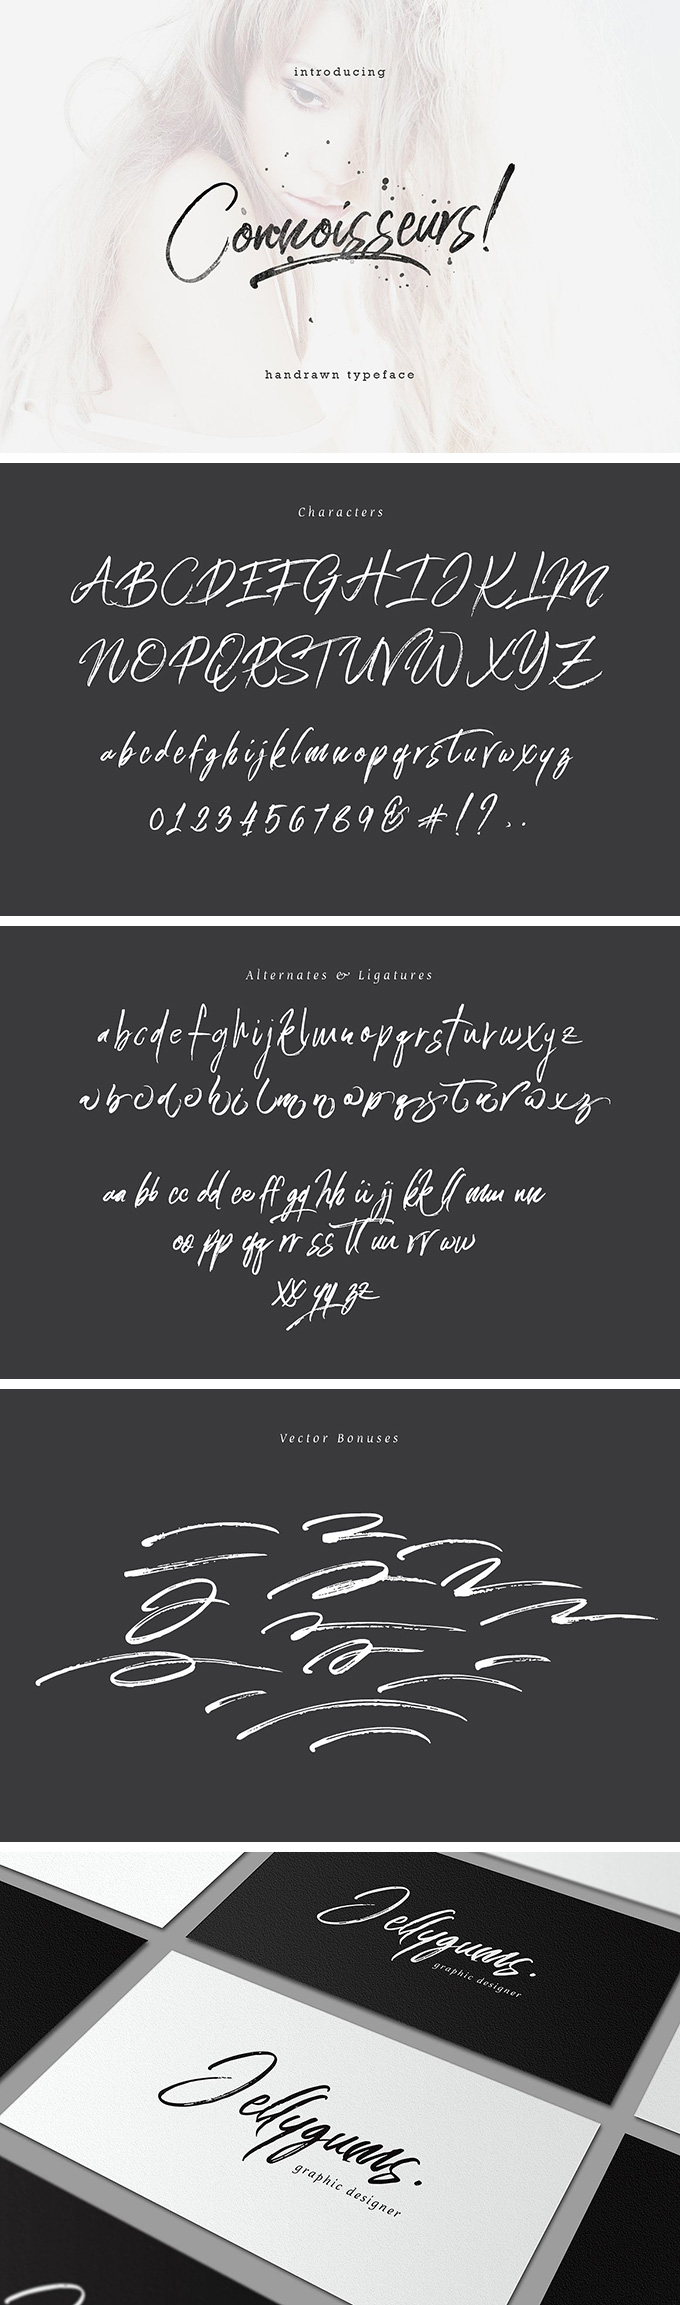 introducing
Connoisseurs!
handrawn typeface
Characters
ABCDEFGHIJKLM
NOPQRSTUVWXYZ
abcdefghijklmnopqrstuvwxyz
0123456789&#!?,.
Alternates & Ligatures
abcdefghijklmnopqrstuvwxyz
abcdehilmnopqrstuvwxz
aa bb cc dd ee ff gg hh ii jj kk ll mm nn
oo pp qq rr ss tt uu vv ww
xx yy zz
Vector Bonuses
Jellygums.
graphic designer
Jellygums.
graphic designer